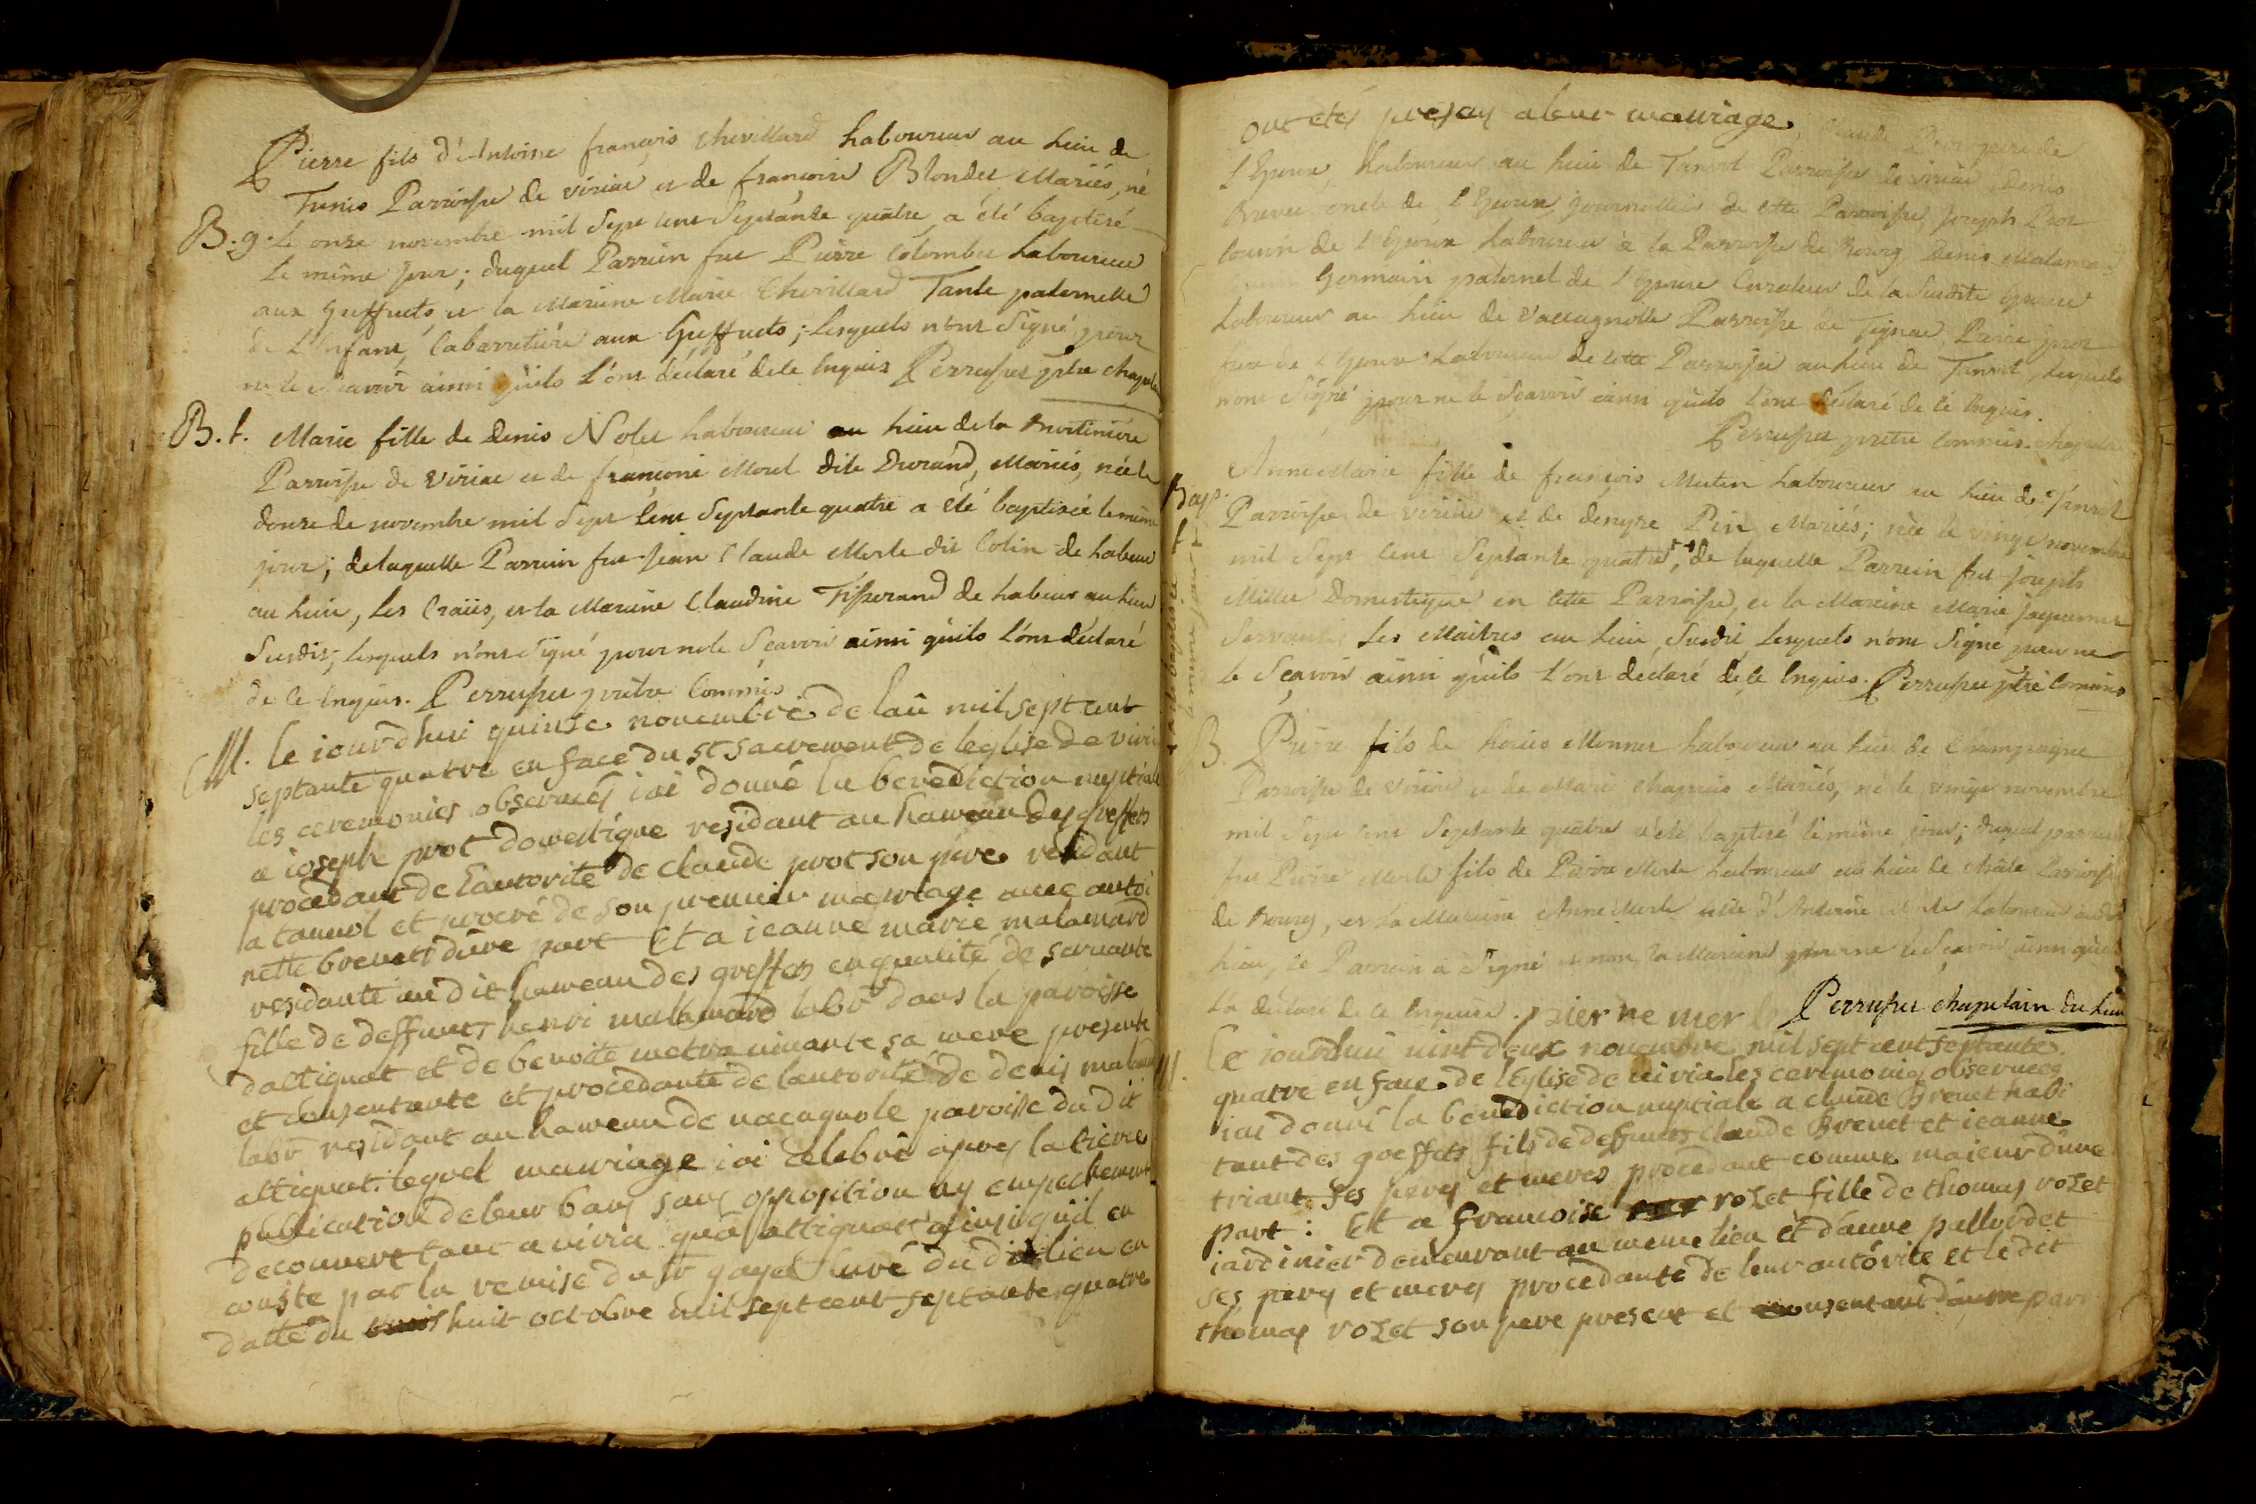 Pierre fils d'Antoine françois Chevillard Laboureur au Lieu de
Tunis Parroisse de viriac et de françoise Blondet Mariés, né
B. g. Le onze novembre mil Sept cent Septante quatre a été baptisé
Le même jour; duquel Parrein fut Pierre Colombet Laboureur
aux Greffets et la Mareine Marie Chevillard Tante paternelle
de L'Enfant, Cabarretiére aux Greffets; Lesquels n'ont Signé pour
ne le Sçavoir ainsi qu'ils L'ont déclaré de ce Enquis Perrusset ptre chapelain
B. f. Marie fille de Denis Nolet Laboureur au Lieu de la
Parroisse de Viriac et de françoise Morel dite Durand, Mariés, née le
douze de novembre mil Sept Cent Septante quatre a été baptiseé le même
jour; de laquelle Parrein fut Jean Claude Merle dit Colin de Labeur
au Lieu, Les Craiis, et la Mareine Claudine Tisserand de Labeur au Lieu
Susdit; Lesquels n'ont Signé pour ne le Sçavoir ainsi qu'ils L'ont déclaré
de ce Enquis. Perrusset prêtre Commis
M. le iourdhui quinse novembre de lan mil sept cent
septante quatre en face du st sacrement de leglise de viria
les ceremonies observeés iai donné la benediction nuptiale
a ioseph prot domestique residant au hameau des greffets
procedant de lautorité de claude prot son pére residant
a tanvol et procreé de son premier mariage avec antoi
nette brevet dune part Et a ieanne marie malamard
residante au dit hameau des greffets en qualité de servante
fille de deffunts henri malamard labr dans la paroisse
dattignat et de benoite metra vivante sa mere presente
et consentante et procedante de lautorité de denis malamard
labr residant au hameau de vacagnole paroisse du dit
attignat. lequel mariage iai celebré apres la tierce
publication de leur bans sans opposition ny empechement
decouvert tant a viria qua attignat ainsi quil en
conste par la remise du sr gayet curé du dit lieu en
datte du huit octobre mil sept cent septante quatre
ont etés presens a leur mariage, Claude Prot pere de
L'Epoux, Laboureur au Lieu de Tanvol Parroisse de viriac Denis
Brevet oncle de l'Epoux, journallier de cette Parroisse, joseph Prot
Cousin de L'Epoux Laboureur à la Parroisse de Bourg Denis Malamard
Germain paternel de l'Epouse Curateur de la Susdite Epouse
Laboureur au Lieu de Vaccagnolle Parroisse de Tignac, Pierre prot
de L'Epoux Laboureur de cette Parroisse au Lieu de Tanvol, Lesquels
n'ont Signé pour ne le Sçavoir ainsi qu'ils L'ont déclaré de ce Enquis.
Perrusset prêtre Commis. chapelain
Bap. f. Anne Marie fille de françois Mutin Laboureur au Lieu de Tanvol
Parroisse de viriac et de denyse Pin Mariés; née le vingt novembre
mil Sept Cent Septante quatre, de laquelle Parrein fut joseph
Millet Domestique en cette Parroisse, et la Mareine Marie jaquemet
Servante Les Maitres au Lieu Susdit, Lesquels n'ont Signé pour ne
le Sçavoir ainsi qu'ils L'ont declaré de ce Enquis. Perrusset ptre Commis
B. Pierre fils de Monnet Laboureur au Lieu de Champagne
Parroisse de Viriac et de Marie Mariés, né le vingt novembre
mil Sept cent Septante quatre a été baptisé le même jour; duquel parrein
fut Pierre Merle fils de Pierre Merle Laboureur au Lieu de Parroisse
de Bourg, et La Mareine Anne Merle fille d'Antoine Laboureur audit
Lieu, Le Parrein a Signé et non la Mareine pour ne le Sçavoir ainsi qu'elle
L'a déclaré de ce Enquise. Perrusset chapelain du Lieu
M. Ce iourdhui vint deux novembre mil sept cent septante
quatre en face de l'Eglise de viria les ceremonies observees
iai donné la benediction nuptiale a claude Brevet habi
tant des greffets fils de deffunts claude Brevet et ieanne
triant ses peres et meres procedant comme maieur dune
part: Et a francoise rozet fille de thomas rozet
iardinier demeurant au meme lieu et danne pallordet
ses peres et meres procedante de leur autorite et le dit
thomas rozet son pere present et consentant dautre part